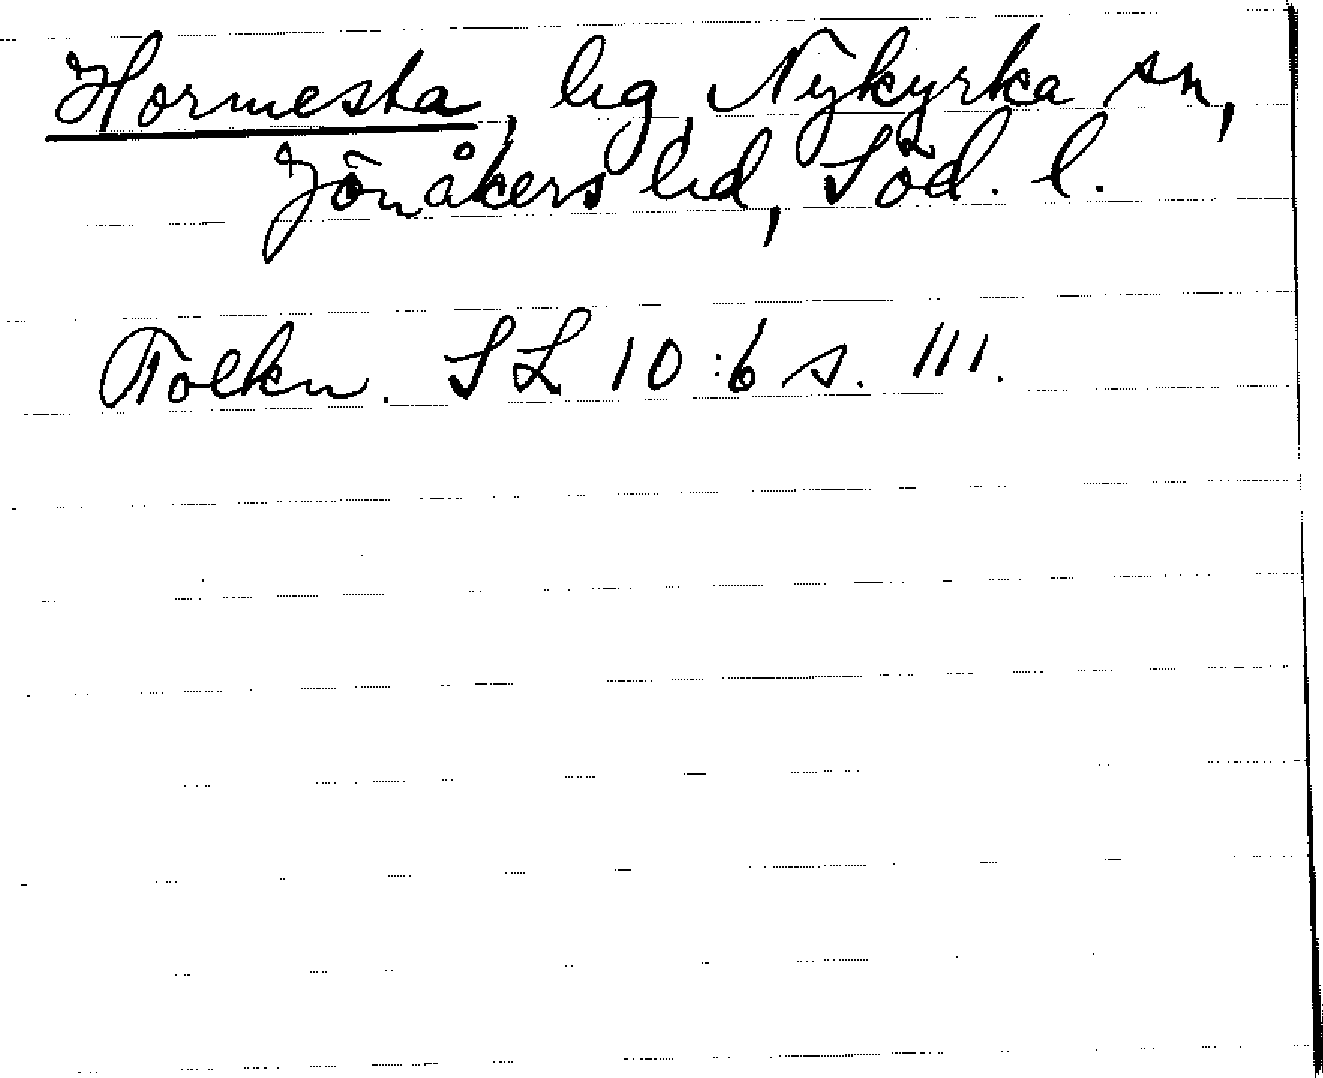 Hormesta, hg, Nykyrka sn,
Jönåkers hd, Söd. l.
Tolkn. SL 10:6 s. 111.